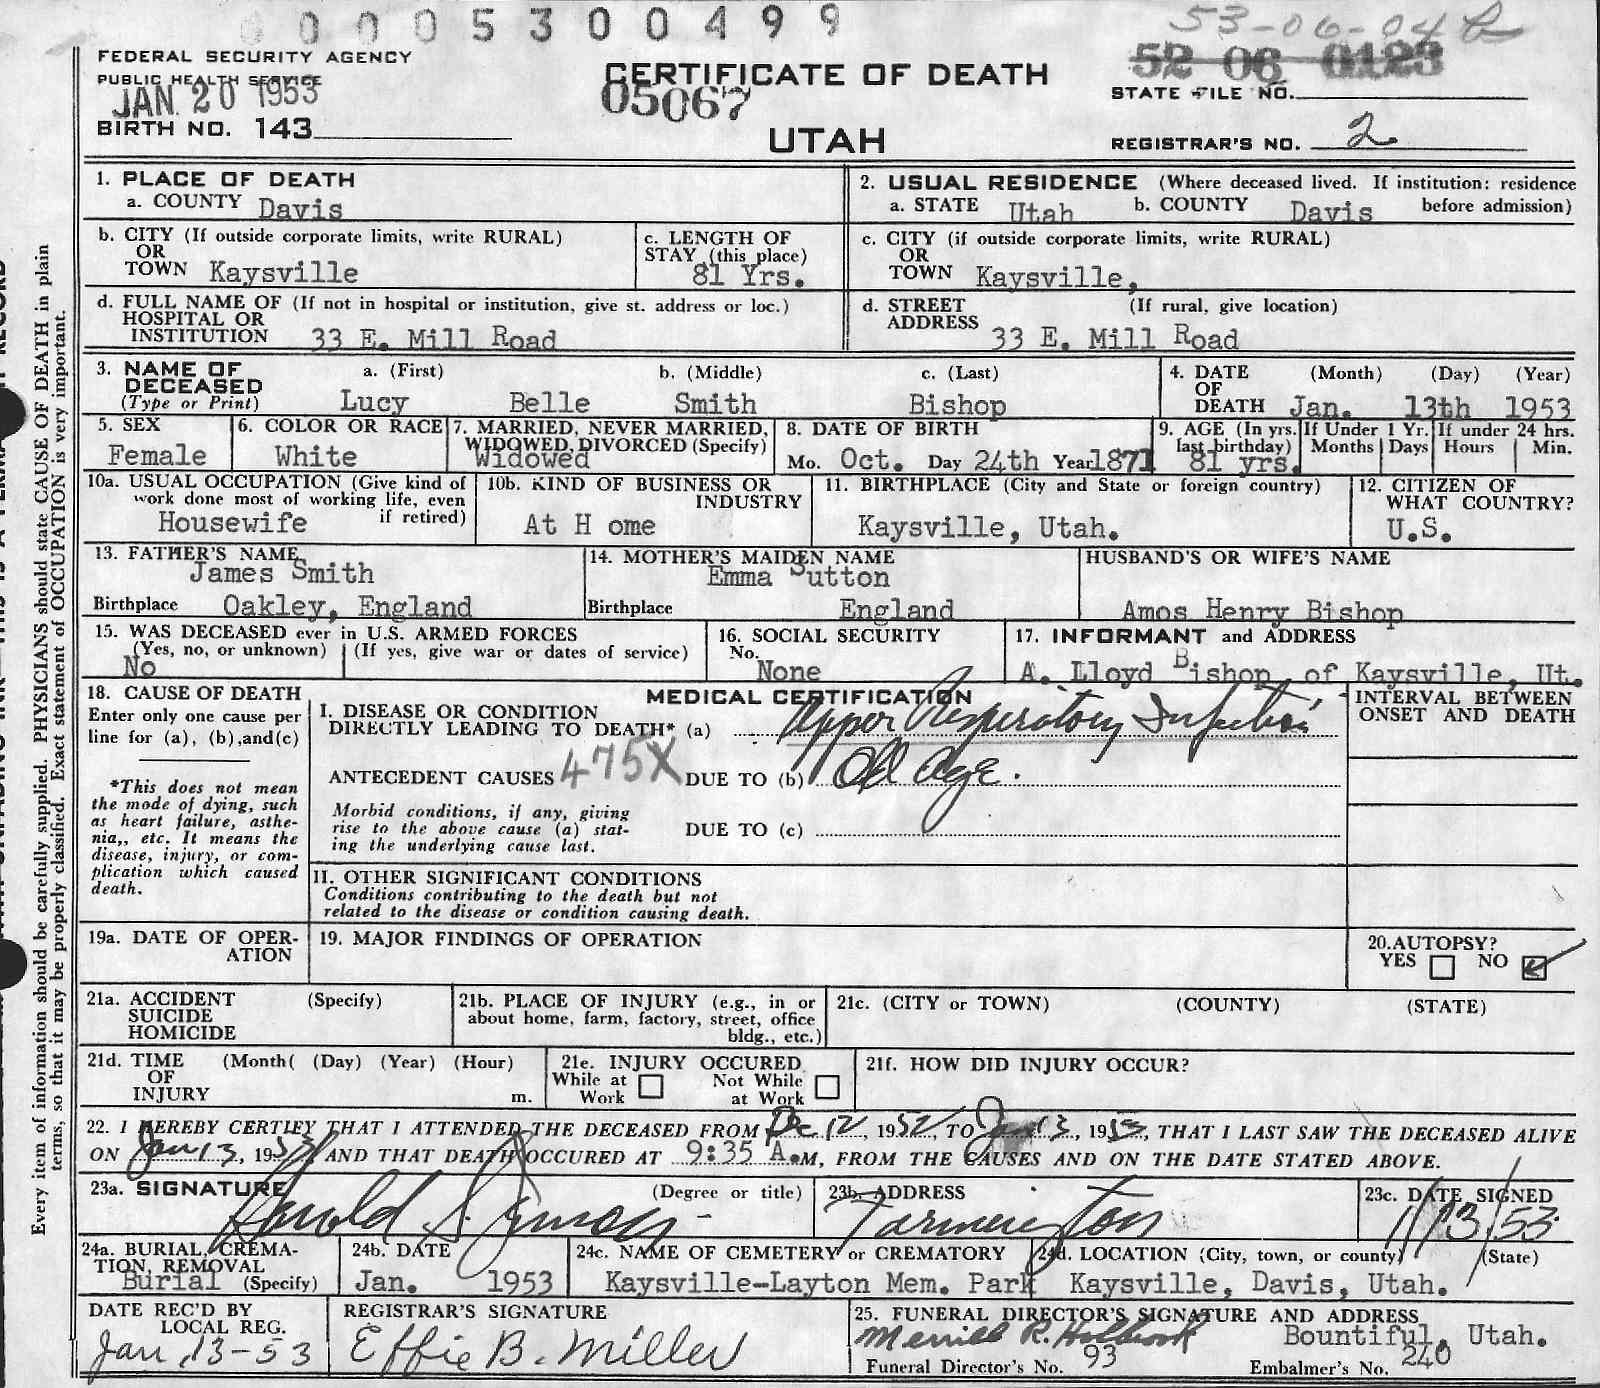 0005300499
53-06-04
52 06 0123
FEDERAL SECURITY AGENCY
PUBLIC HEALTH SERVICE
JAN 20 1953
CERTIFICATE OF DEATH
05067
UTAH
STATE FILE NO.
BIRTH NO. 143
REGISTRAR'S NO. 2
1. PLACE OF DEATH
a. COUNTY Davis
2. USUAL RESIDENCE (Where deceased lived. If institution: residence before admission)
a. STATE Utah b. COUNTY Davis
b. CITY (If outside corporate limits, write RURAL)
OR
TOWN Kaysville
c. LENGTH OF
STAY (this place)
81 Yrs.
c. CITY (if outside corporate limits, write RURAL)
OR
TOWN Kaysville,
d. FULL NAME OF (If not in hospital or institution, give st. address or loc.)
HOSPITAL OR
INSTITUTION 33 E. Mill Road
d. STREET (If rural, give location)
ADDRESS 33 E. Mill Road
3. NAME OF a. (First) b. (Middle) c. (Last)
DECEASED
(Type or Print) Lucy Belle Smith Bishop
4. DATE (Month) (Day) (Year)
OF
DEATH Jan. 13th 1953
5. SEX
Female
6. COLOR OR RACE
White
7. MARRIED, NEVER MARRIED,
WIDOWED, DIVORCED (Specify)
Widowed
8. DATE OF BIRTH
Mo. Oct. Day 24th Year 1871
9. AGE (In yrs. last birthday)
81 yrs.
If Under 1 Yr.
Months Days
If under 24 hrs.
Hours Min.
10a. USUAL OCCUPATION (Give kind of
work done most of working life, even
if retired)
Housewife
10b. KIND OF BUSINESS OR
INDUSTRY
At H ome
11. BIRTHPLACE (City and State or foreign country)
Kaysville, Utah.
12. CITIZEN OF
WHAT COUNTRY?
U.S.
13. FATHER'S NAME
James Smith
Birthplace Oakley, England
14. MOTHER'S MAIDEN NAME
Emma Sutton
Birthplace England
HUSBAND'S OR WIFE'S NAME
Amos Henry Bishop
15. WAS DECEASED ever in U.S. ARMED FORCES
(Yes, no, or unknown) (If yes, give war or dates of service)
No
16. SOCIAL SECURITY
No.
None
17. INFORMANT and ADDRESS
A. Lloyd Bishop of Kaysville, Ut.
18. CAUSE OF DEATH
Enter only one cause per
line for (a), (b),and(c)
*This does not mean
the mode of dying, such
as heart failure, asthe-
nia,, etc. It means the
disease, injury, or com-
plication which caused
death.
MEDICAL CERTIFICATION
I. DISEASE OR CONDITION
DIRECTLY LEADING TO DEATH* (a) Upper Respiratory Infection
ANTECEDENT CAUSES 475X DUE TO (b) Old age.
Morbid conditions, if any, giving
rise to the above cause (a) stat-
ing the underlying cause last.
DUE TO (c)
INTERVAL BETWEEN
ONSET AND DEATH
II. OTHER SIGNIFICANT CONDITIONS
Conditions contributing to the death but not
related to the disease or condition causing death.
19a. DATE OF OPER-
ATION
19. MAJOR FINDINGS OF OPERATION
20.AUTOPSY?
YES NO
21a. ACCIDENT (Specify)
SUICIDE
HOMICIDE
21b. PLACE OF INJURY (e.g., in or
about home, farm, factory, street, office
bldg., etc.)
21c. (CITY or TOWN) (COUNTY) (STATE)
21d. TIME (Month( (Day) (Year) (Hour)
OF
INJURY m.
21e. INJURY OCCURED
While at Work Not While at Work
21f. HOW DID INJURY OCCUR?
22. I HEREBY CERTIFY THAT I ATTENDED THE DECEASED FROM Dec 12, 1952, TO Jan 13, 1953, THAT I LAST SAW THE DECEASED ALIVE
ON Jan 13, 1953, AND THAT DEATH OCCURED AT 9:35 A.M, FROM THE CAUSES AND ON THE DATE STATED ABOVE.
23a. SIGNATURE (Degree or title)
Harold S.
23b. ADDRESS
Farmington
23c. DATE SIGNED
1/13/53
24a. BURIAL, CREMA-
TION, REMOVAL
Burial (Specify)
24b. DATE
Jan. 1953
24c. NAME OF CEMETERY or CREMATORY
Kaysville-Layton Mem. Park
24d. LOCATION (City, town, or county) (State)
Kaysville, Davis, Utah.
DATE REC'D BY
LOCAL REG.
Jan 13-53
REGISTRAR'S SIGNATURE
Effie B. Miller
25. FUNERAL DIRECTOR'S SIGNATURE AND ADDRESS
Merrill R. Holbrook Bountiful, Utah.
Funeral Director's No. 93 Embalmer's No. 240
Every item of information should be carefully supplied. PHYSICIANS should state CAUSE OF DEATH in plain
terms, so that it may be properly classified. Exact statement of OCCUPATION is very important.